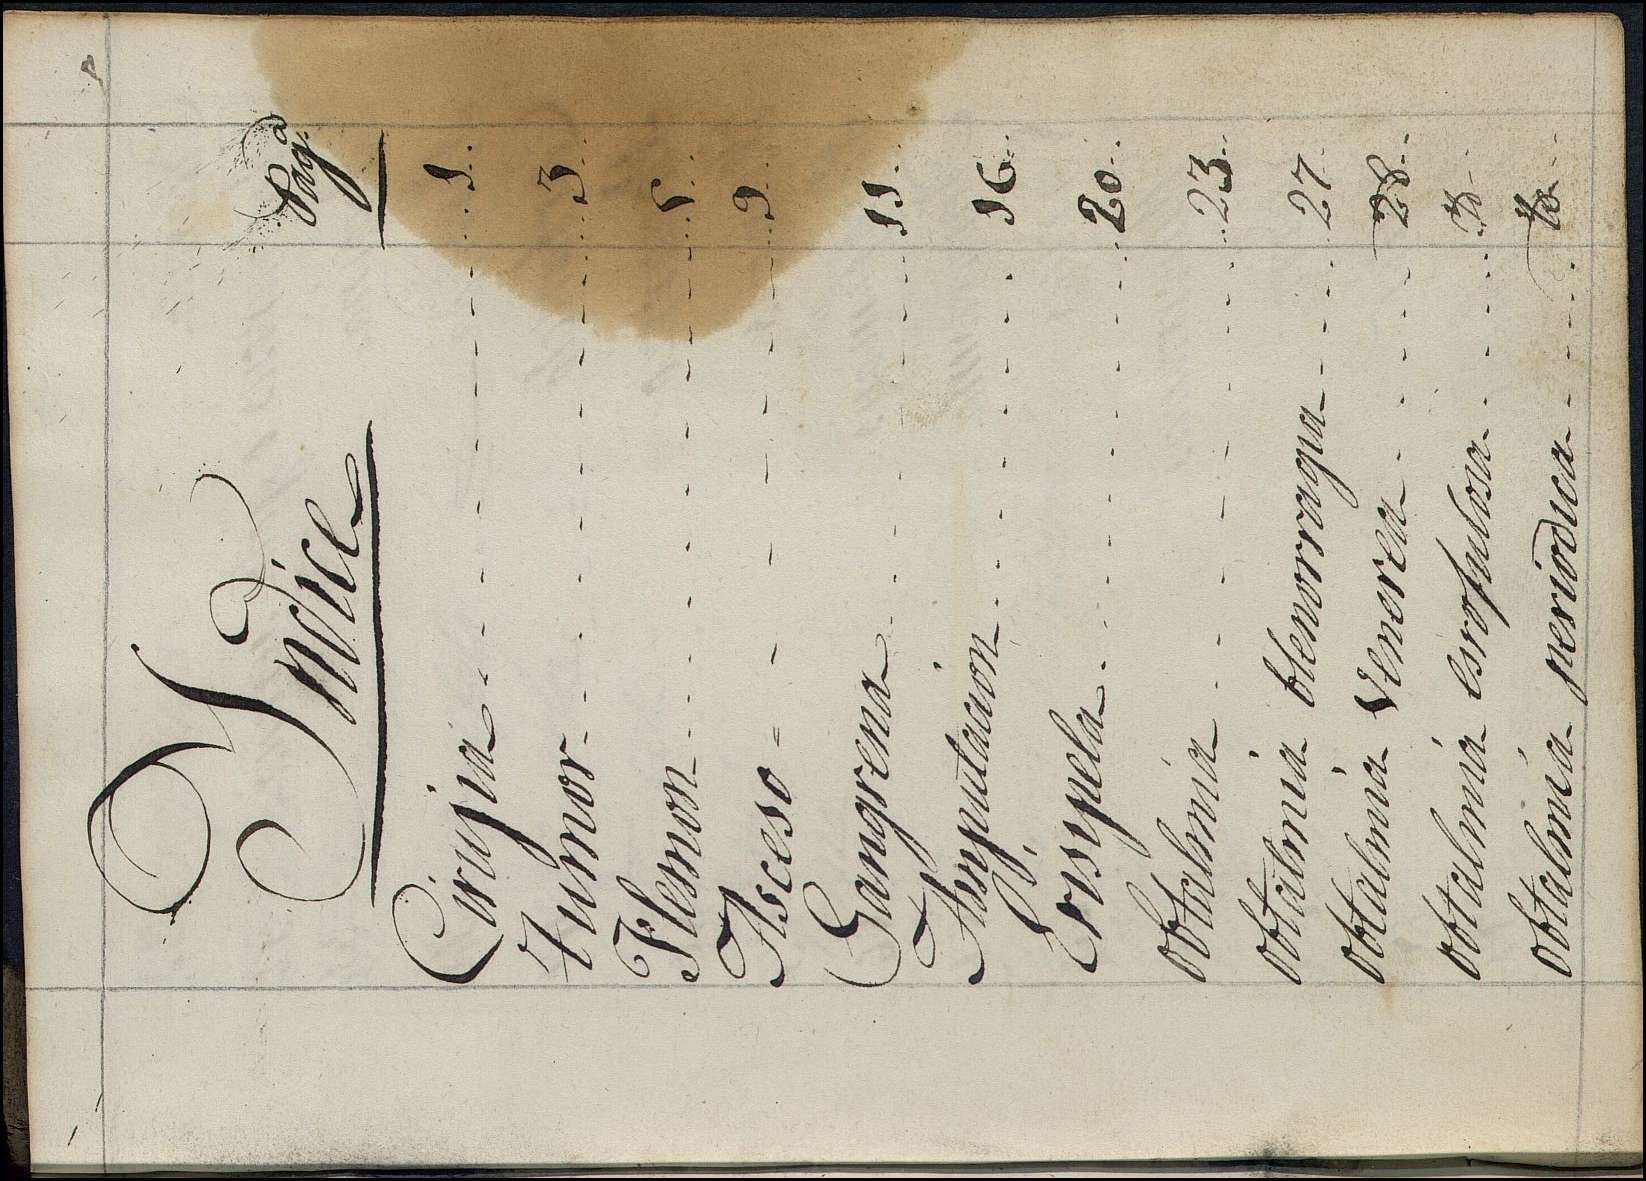 Indice Pag.ª
Cirujia 1
Tumor 3
Flemon 5
Absceso 9
Gangrena 11
Amputacion 16
Erisipela 20
obtalmia 23
obtalmia blenorragia 27
obtalmia venerea 28
obtalmia esrofulosa
obtalmia periodica